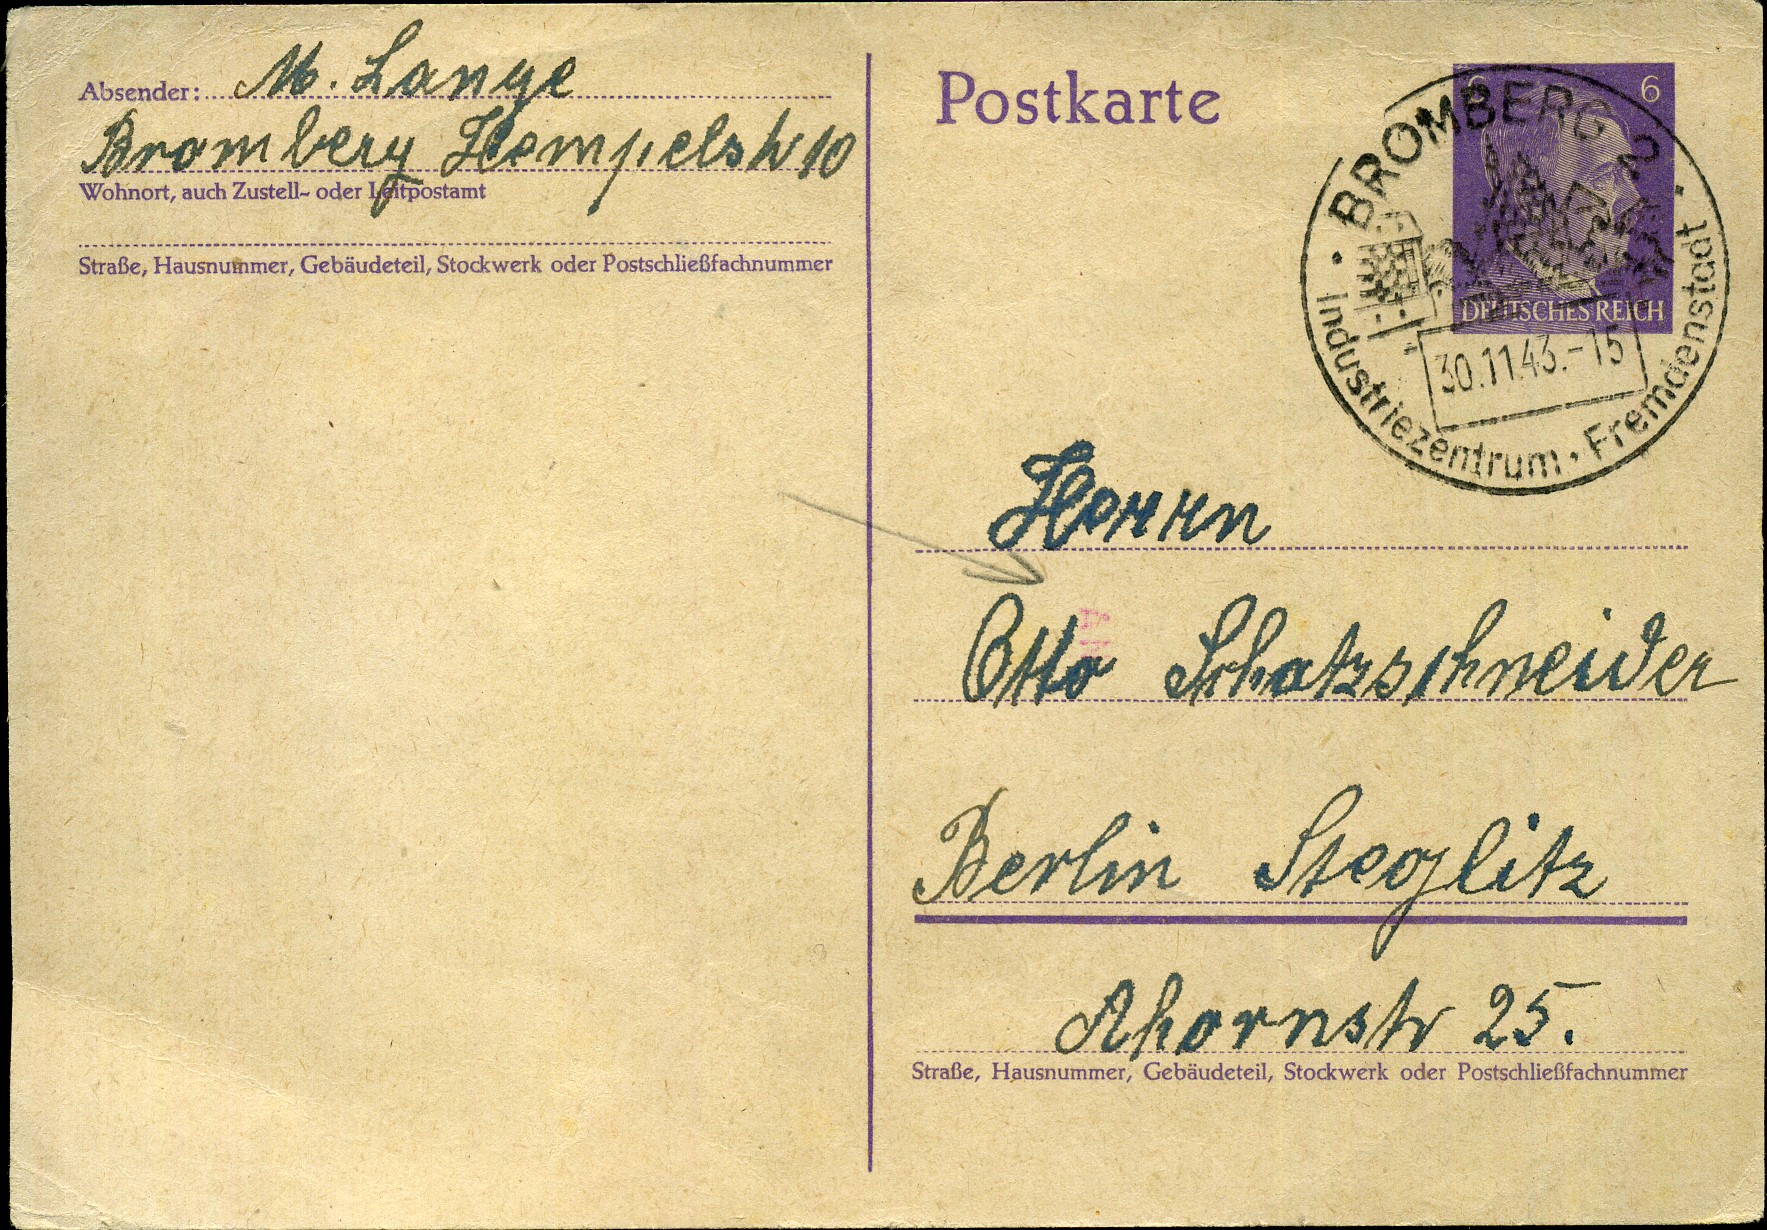 Absender: M. Lange
Bromberg Hempelstr 10
Wohnort, auch Zustell- oder Leitpostamt
Straße, Hausnummer, Gebäudeteil, Stockwerk oder Postschließfachnummer
Postkarte
6 6
DEUTSCHES REICH
BROMBERG 2
30.11.43.-15
Industriezentrum · Fremdenstadt
Herrn
Otto Schatzschneider
Berlin Steglitz
Ahornstr 25.
Straße, Hausnummer, Gebäudeteil, Stockwerk oder Postschließfachnummer